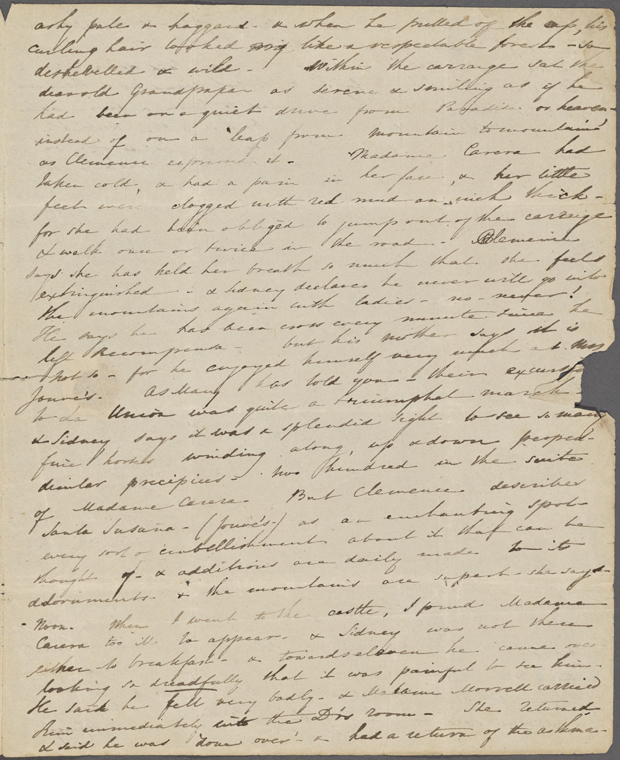 ashy pale & haggard - & when he pulled of the cap, his
curling hair looked like a respectable forest - so
deshevelled & wild - Within the carraige sat the
dear old Grandpapa as serene & smiling as if he
had been on a quiet drive from Paradise or heaven -
instead of on a 'leap from mountain to mountain'
as Clemence expressed it. Madame Carera had
taken cold, & had a pain in her face, & her little
feet were clogged with red mud an inch thick -
for she had been obliged to jump out of the carraige
& walk once or twice in the road - Clemence
says she has held her breath so much that she feels
extinguished - & Sidney declares he never will go into
the mountains again with ladies - no - never!
He says he has been cross every minute since he
left Recompensa - but his mother says it is
not so - for he enjoyed himself very much at Mrs
Jouve's. As Mary has told you - their excursion
to La Union was quite a triumphal march -
& Sidney says it was a splendid sight to see so many
fine horses winding along, up & down perpen-
dicular precipices - two hundred in the suite
of Madame Carera. But Clemence describes
Santa Susana - (Jouve's) as an enchanting spot -
every sort of embellishment about it that can be
thought of - & additions are daily made to its
adornments & the mountains are superb she says -
Noon. When I went to the castle, I found Madame
Carera too ill to appear - & Sidney was not there
either to breakfast - & towards eleven he came over
looking so dreadfully that it was painful to see him -
He said he felt very badly - & Madame Morrell carried
him immediately into the D'rs room - She returned
& said he was 'done over' - & had a return of the asthma -